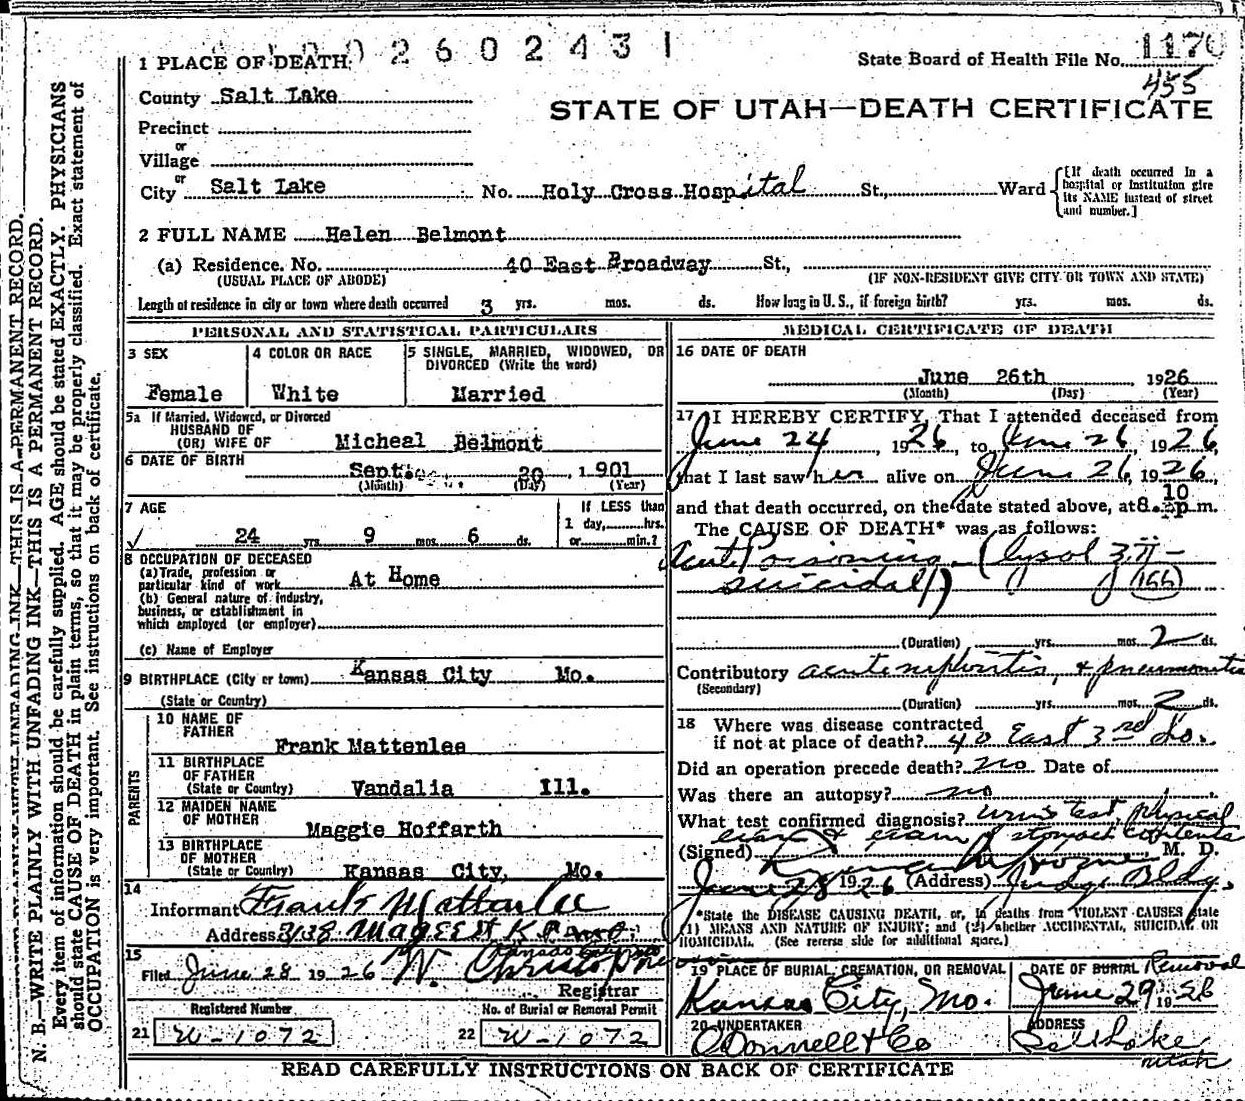 0260243
1 PLACE OF DEATH
State Board of Health File No. 1170
455
County Salt Lake
STATE OF UTAH—DEATH CERTIFICATE
Precinct
or
Village
or
City Salt Lake No. Holy Cross Hospital St., Ward [If death occurred in a hospital or institution give its NAME instead of street and number.]
2 FULL NAME Helen Belmont
(a) Residence. No. 40 East Broadway St.,
(USUAL PLACE OF ABODE) (IF NON-RESIDENT GIVE CITY OR TOWN AND STATE)
Length of residence in city or town where death occurred 3 yrs. mos. ds. How long in U. S., if foreign birth? yrs. mos. ds.
PERSONAL AND STATISTICAL PARTICULARS
3 SEX
Female
4 COLOR OR RACE
White
5 SINGLE, MARRIED, WIDOWED, OR DIVORCED (Write the word)
Married
5a If Married, Widowed, or Divorced
HUSBAND OF
(OR) WIFE OF Micheal Belmont
6 DATE OF BIRTH
Sept 20, 1901
(Month) (Day) (Year)
7 AGE
24 yrs. 9 mos. 6 ds.
If LESS than
1 day, hrs.
or min.?
8 OCCUPATION OF DECEASED
(a) Trade, profession or
particular kind of work At Home
(b) General nature of industry,
business, or establishment in
which employed (or employer)
(c) Name of Employer
9 BIRTHPLACE (City or town) Kansas City Mo.
(State or Country)
PARENTS
10 NAME OF
FATHER
Frank Mattenlee
11 BIRTHPLACE
OF FATHER
(State or Country) Vandalia Ill.
12 MAIDEN NAME
OF MOTHER
Maggie Hoffarth
13 BIRTHPLACE
OF MOTHER
(State or Country) Kansas City, Mo.
14
Informant Frank Mattenlee
Address 3138
15
Filed June 28 1926
Registrar
Registered Number
21 W-1072
No. of Burial or Removal Permit
22 W-1072
MEDICAL CERTIFICATE OF DEATH
16 DATE OF DEATH
June 26th 1926
(Month) (Day) (Year)
17 I HEREBY CERTIFY, That I attended deceased from
June 24, 1926, to June 26, 1926,
that I last saw her alive on June 26, 1926,
and that death occurred, on the date stated above, at 8.10 p m.
The CAUSE OF DEATH* was as follows:
Acute Poisoning (lysol
suicidal) 166
(Duration) yrs. mos. 2 ds.
Contributory acute nephritis, & pneumonitis
(Secondary)
(Duration) yrs. mos. 2 ds.
18 Where was disease contracted
if not at place of death? 40 East 3rd So.
Did an operation precede death? no Date of
Was there an autopsy? no
What test confirmed diagnosis? urine test, physical
exam & exam of stomach contents
(Signed) M. D.
June 28 1926 (Address) Judge Bldg.
*State the DISEASE CAUSING DEATH, or, in deaths from VIOLENT CAUSES state
(1) MEANS AND NATURE OF INJURY; and (2) whether ACCIDENTAL, SUICIDAL OR
HOMICIDAL. (See reverse side for additional space.)
19 PLACE OF BURIAL, CREMATION, OR REMOVAL
Kansas City, Mo.
DATE OF BURIAL Removal
June 29 1926
20 UNDERTAKER
O'Donnell & Co
ADDRESS
Salt Lake
Utah
READ CAREFULLY INSTRUCTIONS ON BACK OF CERTIFICATE
N. B.—WRITE PLAINLY WITH UNFADING INK—THIS IS A PERMANENT RECORD.
Every item of information should be carefully supplied. AGE should be stated EXACTLY. PHYSICIANS
should state CAUSE OF DEATH in plain terms, so that it may be properly classified. Exact statement of
OCCUPATION is very important. See instructions on back of certificate.